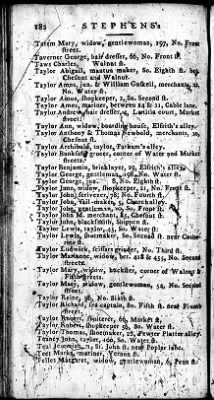 182 STEPHENS's
Tatem Mary, widow, gentlewoman, 197, No. Front
street.
Taverner George, hair dresser, 66, No. Front st.
Taws Charles, Walnut st.
Taylor Abigail, mantua maker, So. Eighth st. bet.
Chesnut and Walnut.
Taylor Amos, jun. & William Gaskell, merchants,
No. Water st.
Taylor Amos, shopkeeper, 2, So. Second st.
Taylor Amos, mariner, between 24 & 21, Cable lane.
Taylor Andrew, hair dresser, Lætitia court, Market
street.
Taylor Ann, widow, boarding house, Elfrith's alley.
Taylor Anthony & Thomas Newbold, merchants,
So. Water st.
Taylor Archibald, taylor, Parham's alley.
Taylor grocer, corner of Water and Market
streets.
Taylor Benjamin, bricklayer, 29, Elfrith's alley.
Taylor George, gentleman, No. Water st.
Taylor George, jun. 8, So. Eighth st.
Taylor Jane, widow, shopkeeper, 51, No. Front st.
Taylor John, scrivener, 78, So. Fourth st.
Taylor John, sail-maker, 5, Church alley.
Taylor John, gentleman, So. Front st.
Taylor John M. merchant, 85, Chesnut st.
Taylor John, blacksmith, Shippen st.
Taylor Lewis, taylor, 45, So. Water st.
Taylor Lewis, shoemaker, So. Second st. near
st.
Taylor Lodwick, scissars grinder, No. Third st.
Taylor Marianne, widow, bet. 428 & 455, No. Second
street.
Taylor Mary, widow, huckster, corner of Walnut &
Fifth streets.
Taylor Mary, widow, gentlewoman, 54, No. Second
street.
Taylor Reine, 96, No. Sixth st.
Taylor Richard, sea captain, So. Fifth st. near
street.
Taylor Robert, 66, Market st.
Taylor Robert, shopkeeper, 59, So. Water st.
Taylor Thomas, shoemaker, 28, Pewter Platter alley.
Teaney John, taylor, 166, So. Water st.
Teal Jeremiah, 2, St. John st. near Poplar lane.
Teet Mark, mariner, Vernon st.
Telles Margaret, widow, gentlewoman, 6, Penn st.